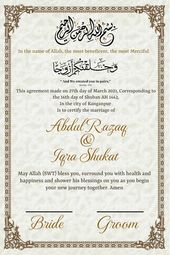 بسم الله الرحمن الرحيم
In the name of Allah, the most beneficent, the most Merciful
وخلقنكم ازوجا
"And We created you in pairs."
This agreement made on 27th day of March 2021, Corresponding to
the 14th day of Shuban AH 1442,
In the city of Kanganpur
Is to certify the marriage of
Abdul Razaq
&
Iqra Shukat
May Allah (SWT) bless you, surround you with health and
happiness and shower his blessings on you as you begin
your new journey together. Amen
Bride Groom